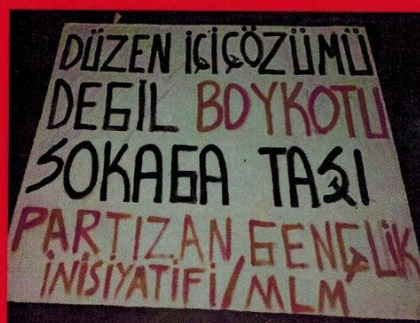 DÜZEN İÇİ ÇÖZÜMÜ
DEĞİL BOYKOTU
SOKAĞA TAŞI
PARTİZAN GENÇLİK
İNİSİYATİFİ/MLM